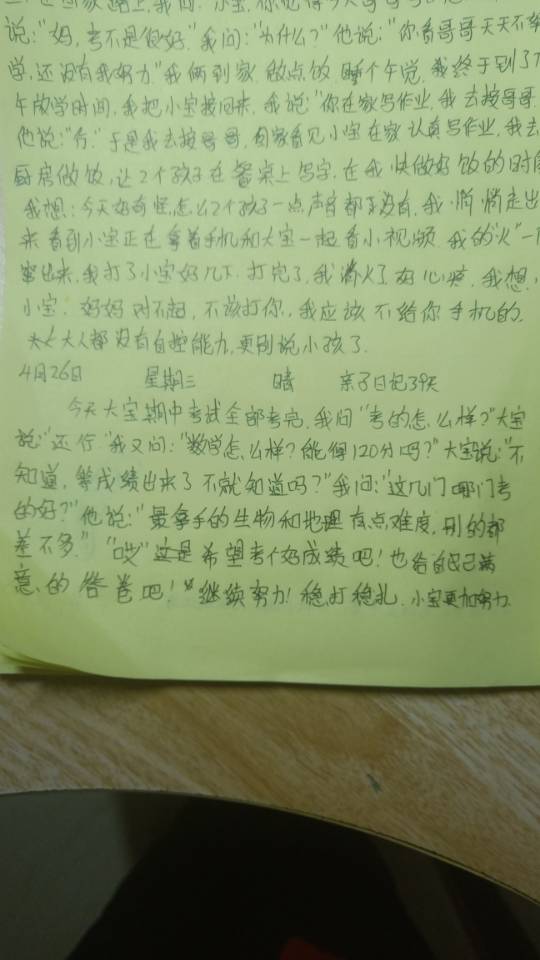 在回家路上,我问:"小宝,你觉得今天哥哥
说:"妈,考不是很好."我问:"为什么?"他说:"你看哥哥天天不
学,还没有我努力"我俩到家做点饭 睡个午觉,我终于到了下
午放学时间,我把小宝接回来,我说:"你在家写作业,我去接哥哥.
他说:"行."于是我去接哥哥,回家看见小宝在家认真写作业,我去
厨房做饭,让2个孩子在餐桌上写字,在我快做好饭的时候
我想:今天好奇怪,怎么2个孩子一点声音都没有,我悄悄走出
来看到小宝正在拿着手机和大宝一起看小视频.我的"火"一
窜出来,我打了小宝好几下.打完了,我消火了好心疼.我想,
小宝.妈妈对不起,不该打你,我应该不给你手机的.
大人都没有自控能力,更别说小孩了.
4月26日 星期三 晴 亲子日记39天
今天大宝期中考试全部考完,我问"考的怎么样?"大宝
说:"还行"我又问:"数学怎么样?能得120分吗?"大宝说:"不
知道,等成绩出来了不就知道吗?"我问:"这几门哪门考
的好?"他说:"最拿手的生物和地理有点难度.别的都
差不多.""哎"这是希望考个好成绩吧!也给自己满
意的答卷吧!"继续努力!稳打稳扎.小宝更加努力.